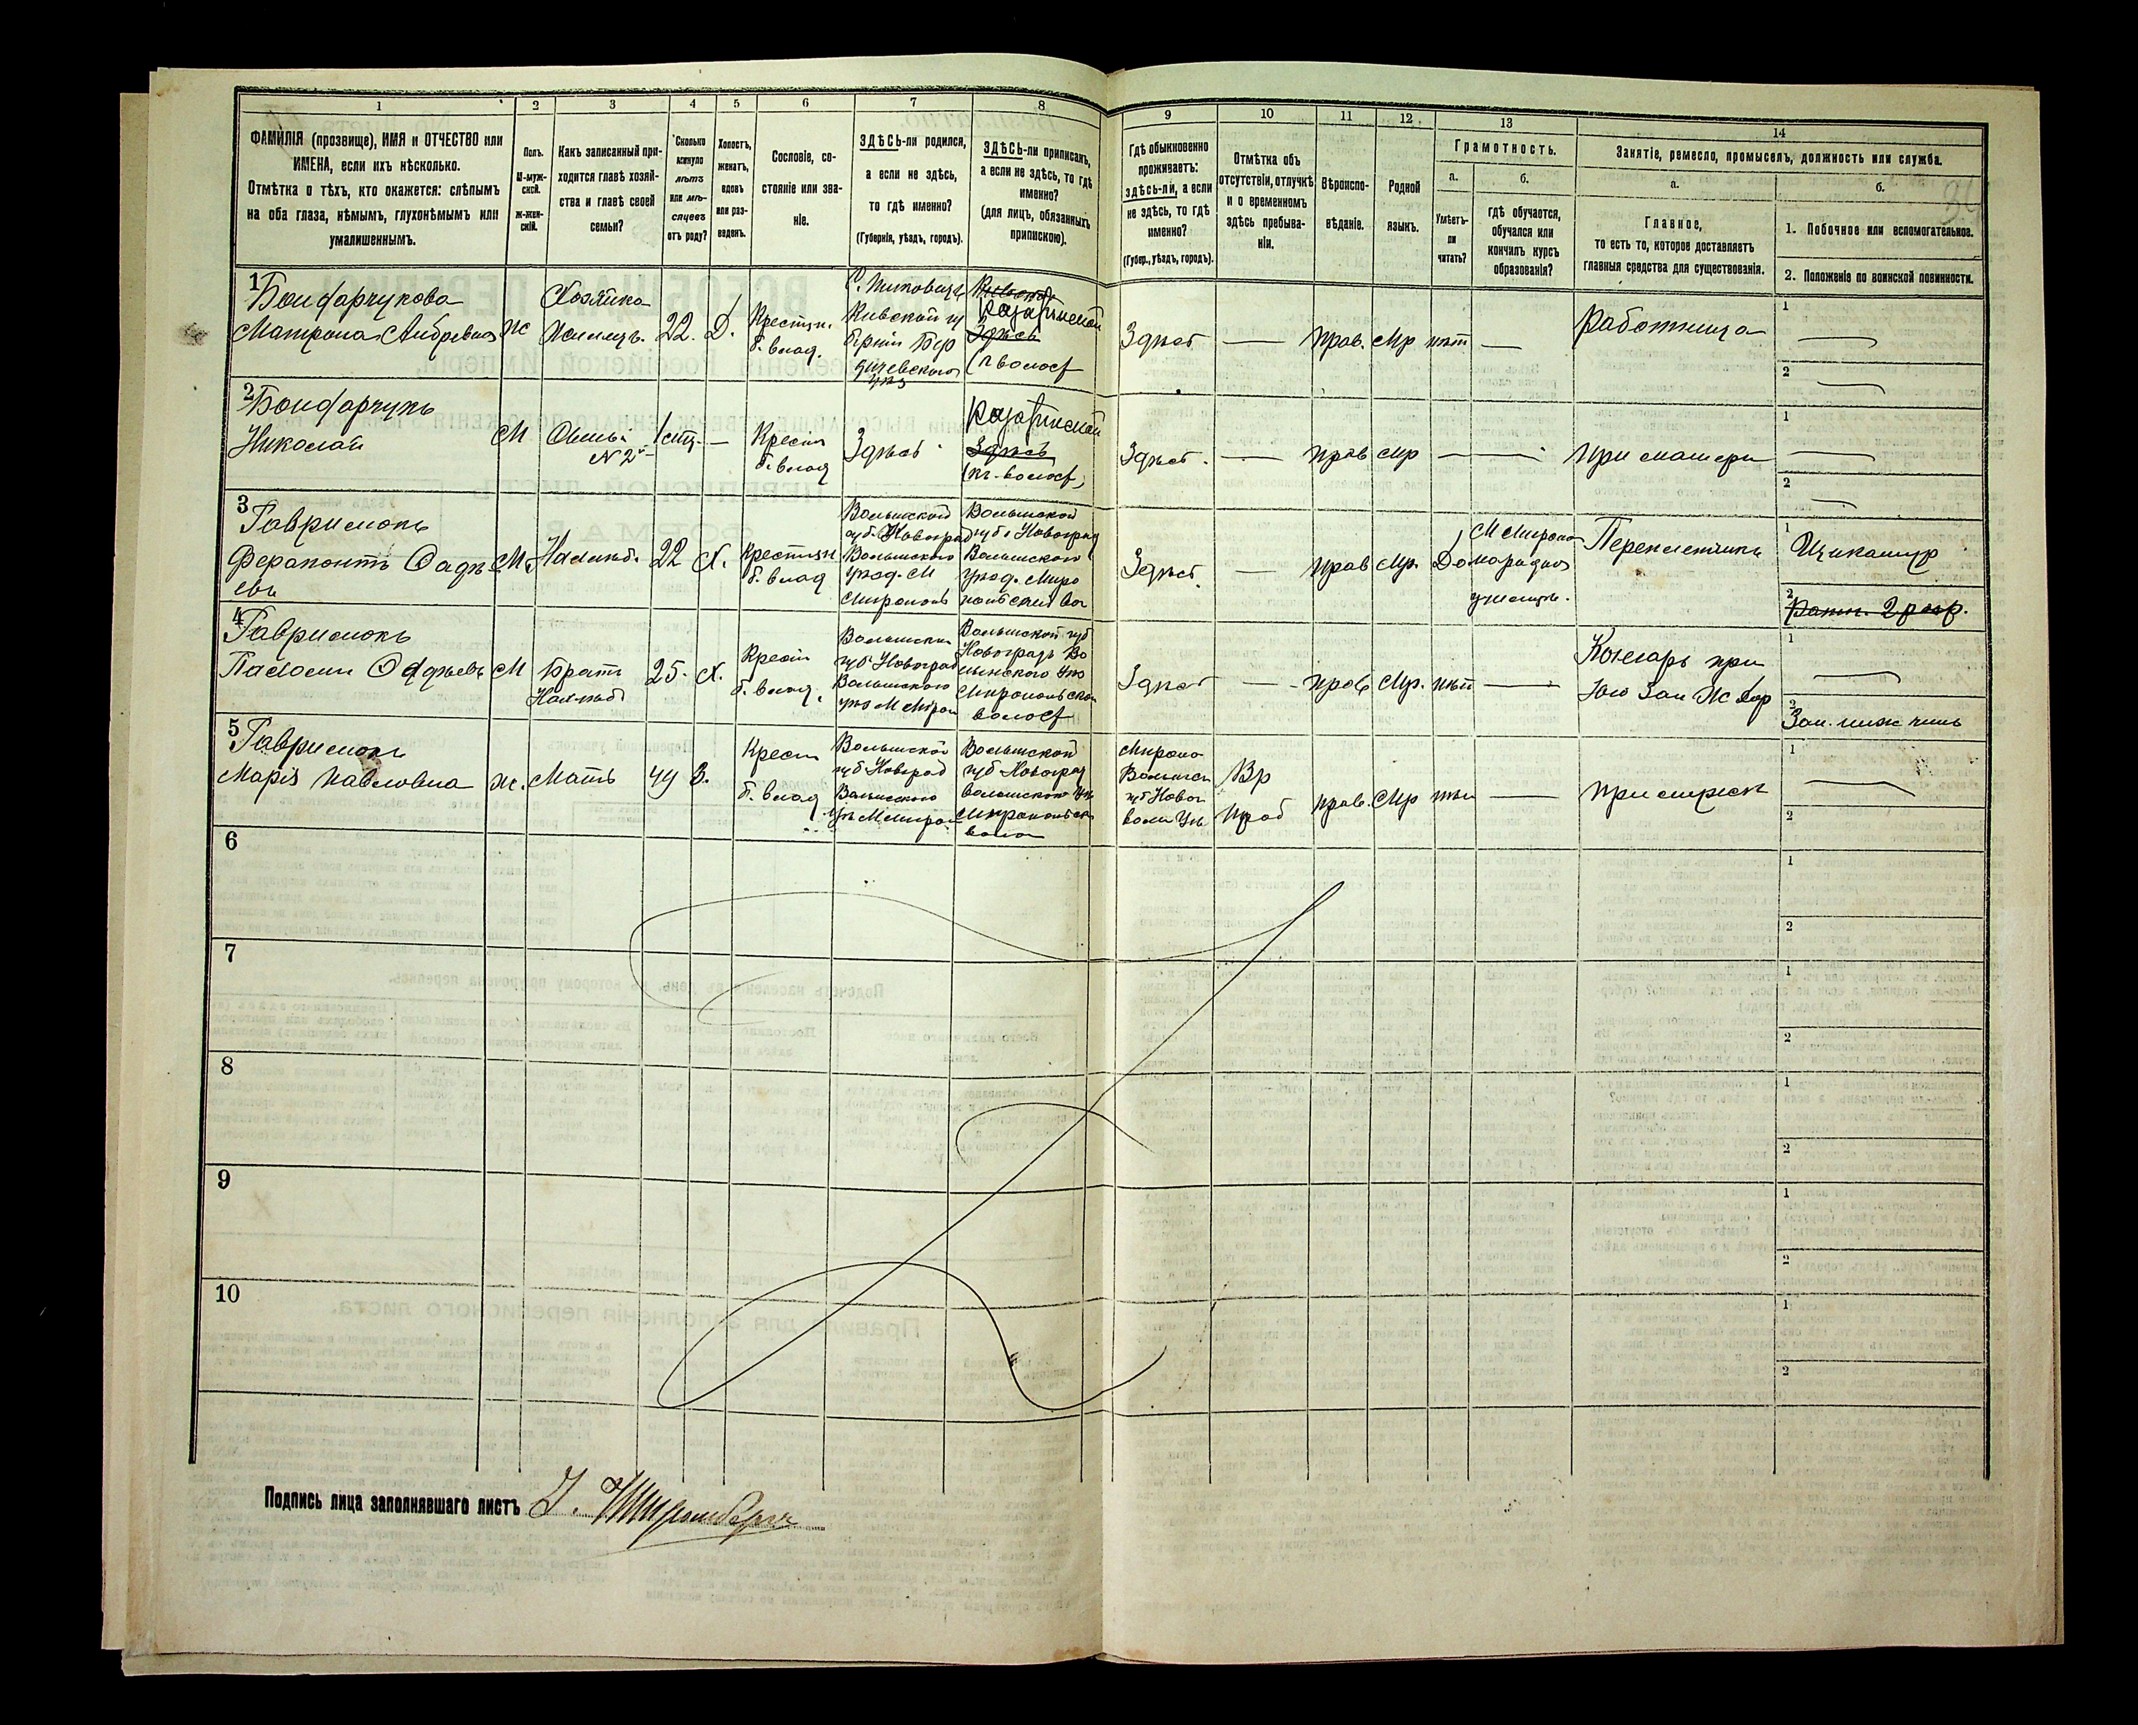 1 2 3 4 5 6 7 8 9 10 11 12 13 14
ФАМИЛІЯ (прозвище), ИМЯ и ОТЧЕСТВО или
ИМЕНА, если ихъ нѣсколько.
Отмѣтка о тѣхъ, кто окажется: слѣпымъ
на оба глаза, нѣмымъ, глухонѣмымъ или
умалишеннымъ.
Полъ.
М-муж-
ской.
Ж-жен-
скій.
Какъ записанный при-
ходится главѣ хозяй-
ства и главѣ своей
семьи?
Сколько
минуло
лѣтъ
или мѣ-
сяцевъ
отъ роду?
Холостъ,
женатъ,
вдовъ
или раз-
веденъ.
Сословіе, со-
стояніе или зва-
ніе.
ЗДѢСЬ-ли родился,
а если не здѣсь,
то гдѣ именно?
(Губернія, уѣздъ, городъ).
ЗДѢСЬ-ли приписанъ,
а если не здѣсь, то гдѣ
именно?
(для лицъ, обязанныхъ
припискою).
Гдѣ обыкновенно
проживаетъ:
здѣсь-ли, а если
не здѣсь, то гдѣ
именно?
(Губер., уѣздъ, городъ).
Отмѣтка объ
отсутствіи, отлучкѣ
и о временномъ
здѣсь пребыва-
ніи.
Вѣроиспо-
вѣданіе.
Родной
языкъ.
Грамотность.
а.
Умѣетъ-
ли
читать?
б.
гдѣ обучается,
обучался или
кончилъ курсъ
образованія?
Занятіе, ремесло, промыселъ, должность или служба.
а.
Главное,
то есть то, которое доставляетъ
главныя средства для существованія.
б.
1. Побочное или вспомогательное.
2. Положеніе по воинской повинности.
1
Бондарчукова
Матрона Андревна
ж
Хозяйка
22.
Д.
Крестян.
б. влад.
Кивской гу
берніи Бер
дичевского
Здѣсь
волост
Здѣсь
—
прав.
Мр
нѣт
—
Работница
1
2
2
Бондарчукъ
Николай
М
№ 2
—
Крест
б. влад
Здѣсь
Здѣсь
волост
Здѣсь
—
прав
Мр
—
—
при матери
1
2
3
Гаврилюкъ
М
22
Х.
Крестян
б. влад
Волынской
губ. Новоград
Волынского
уѣзд. М
Мирополь
Волынской
губ. Новоград
Волынского
уѣзд. Миро
Здѣсь
—
прав
Мр.
Да
училищѣ.
Переплетчикъ
1
2
Ратн. 2 разр.
4
Гаврилюкъ
М
Братъ
25.
Х.
Крест
б. влад.
Волынской
губ Новоград
Волынского
Волынской губ
Новоградъ Во
лынского уѣз
волост
Здѣсь
—
прав
Мр.
нѣт
—
Кочегаръ при
Юго Зап Ж дор
1
2
Зап. ниж чинъ
5
Гаврилюкъ
Марія Павловна
ж.
Мать
49
В.
Крест
б. влад
Волынской
губ Новград
Волынского
Волынской
губ Новоград
Волынского уѣз
Миропо
Волынск
губ Новог
волы уѣз
Вр
проб
прав.
Мр
нѣт
—
1
2
6
1
2
7
1
2
8
1
2
9
1
2
10
1
2
Подпись лица заполнявшаго листъ